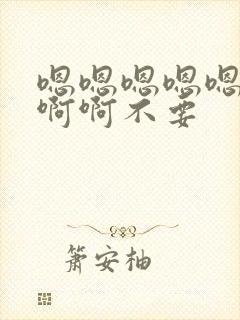 嗯嗯嗯嗯嗯
啊啊不要
箫安柚